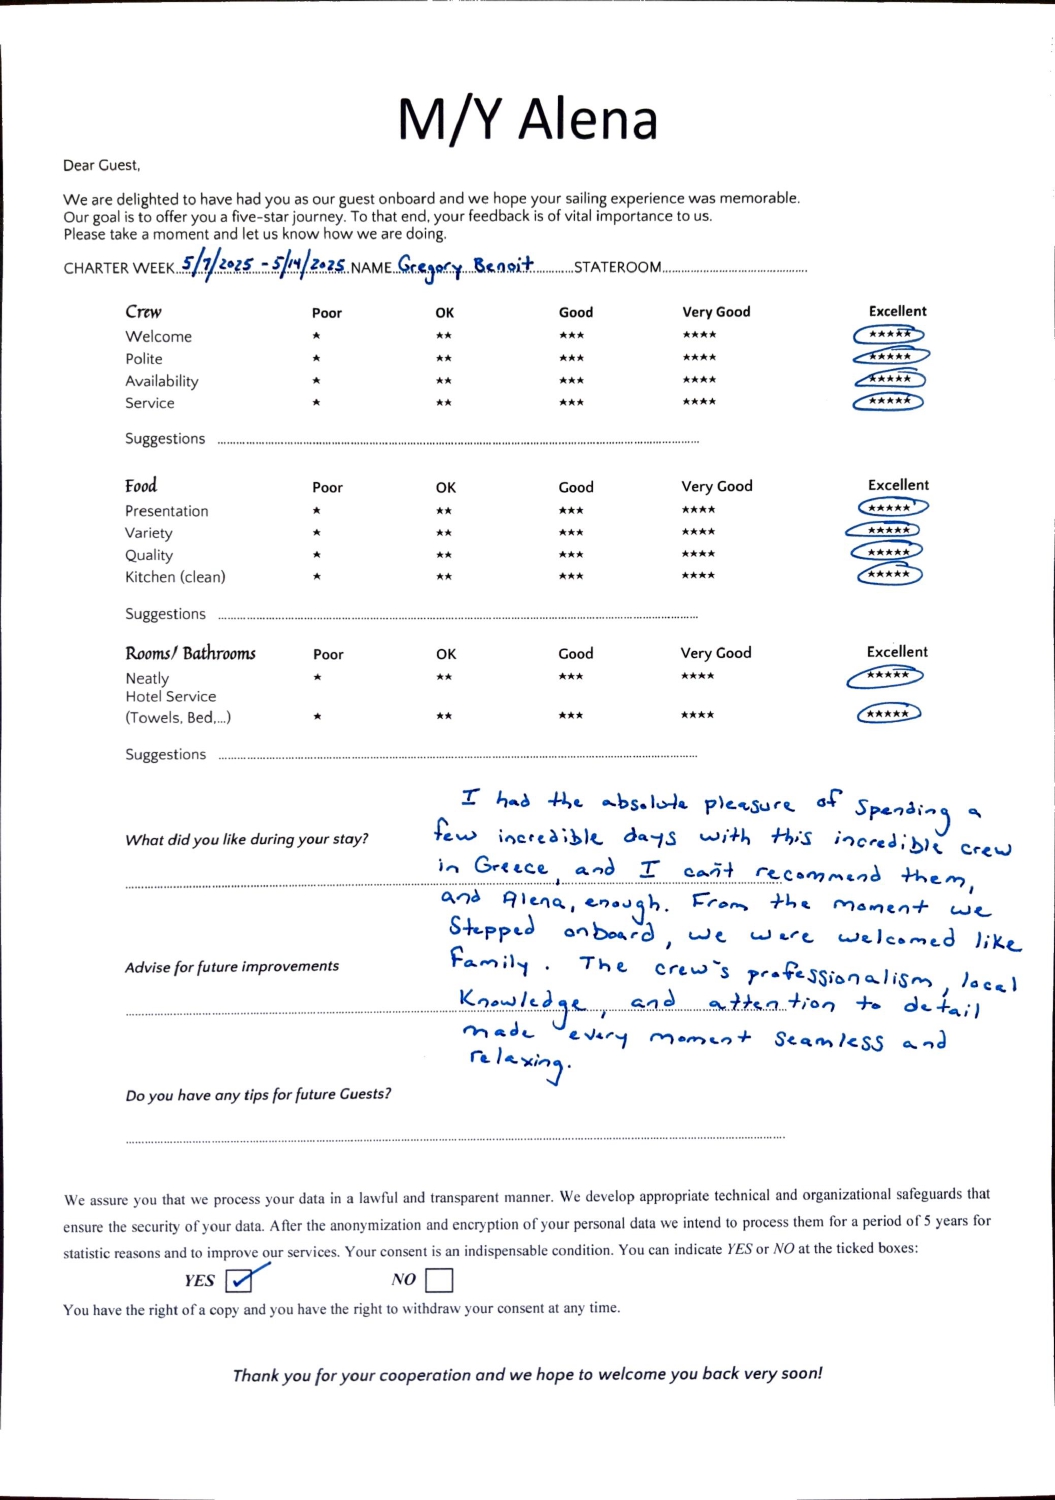 M/Y Alena
Dear Guest,
We are delighted to have had you as our guest onboard and we hope your sailing experience was memorable.
Our goal is to offer you a five-star journey. To that end, your feedback is of vital importance to us.
Please take a moment and let us know how we are doing.
CHARTER WEEK 5/7/2025 - 5/14/2025 NAME Gregory Benoit STATEROOM
Crew Poor OK Good Very Good Excellent
Welcome ★ ★★ ★★★ ★★★★ ★★★★★
Polite ★ ★★ ★★★ ★★★★ ★★★★★
Availability ★ ★★ ★★★ ★★★★ ★★★★★
Service ★ ★★ ★★★ ★★★★ ★★★★★
Suggestions
Food Poor OK Good Very Good Excellent
Presentation ★ ★★ ★★★ ★★★★ ★★★★★
Variety ★ ★★ ★★★ ★★★★ ★★★★★
Quality ★ ★★ ★★★ ★★★★ ★★★★★
Kitchen (clean) ★ ★★ ★★★ ★★★★ ★★★★★
Suggestions
Rooms/ Bathrooms Poor OK Good Very Good Excellent
Neatly ★ ★★ ★★★ ★★★★ ★★★★★
Hotel Service
(Towels, Bed,...) ★ ★★ ★★★ ★★★★ ★★★★★
Suggestions
What did you like during your stay?
I had the absolute pleasure of spending a
few incredible days with this incredible crew
in Greece, and I can't recommend them,
and Alena, enough. From the moment we
stepped onboard, we were welcomed like
family. The crew's professionalism, local
knowledge, and attention to detail
made every moment seamless and
relaxing.
Advise for future improvements
Do you have any tips for future Guests?
We assure you that we process your data in a lawful and transparent manner. We develop appropriate technical and organizational safeguards that
ensure the security of your data. After the anonymization and encryption of your personal data we intend to process them for a period of 5 years for
statistic reasons and to improve our services. Your consent is an indispensable condition. You can indicate YES or NO at the ticked boxes:
YES ☑ NO ☐
You have the right of a copy and you have the right to withdraw your consent at any time.
Thank you for your cooperation and we hope to welcome you back very soon!